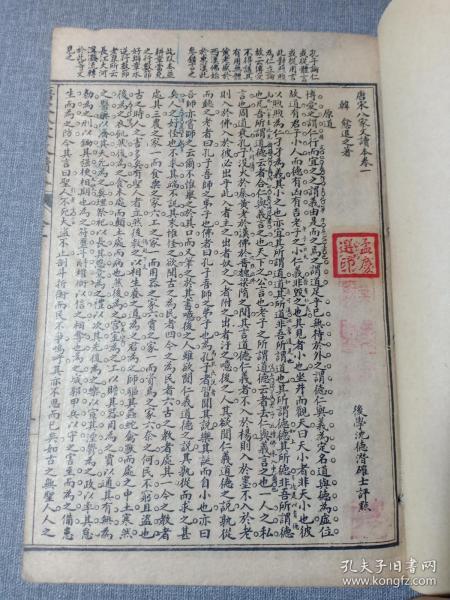 孔子論仁
或從體言
或從用言
唐宋八家文讀本卷一
韓愈退之著
後學沈德潛確士評點
原道
博愛之謂仁行而宜之之謂義由是而之焉之謂道足乎己無待於外之謂德仁與義為定名道與德為虛位
故道有君子小人而德有凶有吉老子之小仁義非毀之也其見者小也坐井而觀天曰天小者非天小也彼
以煦煦為仁孑孑為義其小之也亦宜其所謂道道其所道非吾所謂道也其所謂德德其所德非吾所謂德
也凡吾所謂道德云者合仁與義言之也天下之公言也老子之所謂道德云者去仁與義言之也一人之私
言也周道衰孔子沒火於秦黃老於漢佛於晉魏梁隋之間其言道德仁義者不入於楊則入於墨不入於老
則入於佛入於彼必出於此入者主之出者奴之入者附之出者汙之噫後之人其欲聞仁義道德之說孰從
而聽之老者曰孔子吾師之弟子也佛者曰孔子吾師之弟子也為孔子者習聞其說樂其誕而自小也亦曰
吾師亦嘗師之云爾不惟舉之於其口而又筆之於其書噫後之人雖欲聞仁義道德之說其孰從而求之甚
矣人之好怪也不求其端不訊其末惟怪之欲聞古之為民者四今之為民者六古之教者處其一今之教者
處其三農之家一而食粟之家六工之家一而用器之家六賈之家一而資焉之家六奈之何民不窮且盜也
古之時人之害多矣有聖人者立然後教之以相生養之道為之君為之師驅其蟲蛇禽獸而處之中土寒然
後為之衣飢然後為之食木處而顛土處而病也然後為之宮室為之工以贍其器用為之賈以通其有無為
之醫藥以濟其夭死為之葬埋祭祀以長其恩愛為之禮以次其先後為之樂以宣其湮鬱為之政以率其怠
勌為之刑以鋤其強梗相欺也為之符璽斗斛權衡以信之相奪也為之城郭甲兵以守之害至而為之備患
生而為之防今其言曰聖人不死大盜不止剖斗折衡而民不爭嗚呼其亦不思而已矣如古之無聖人人之
孔夫子旧书网